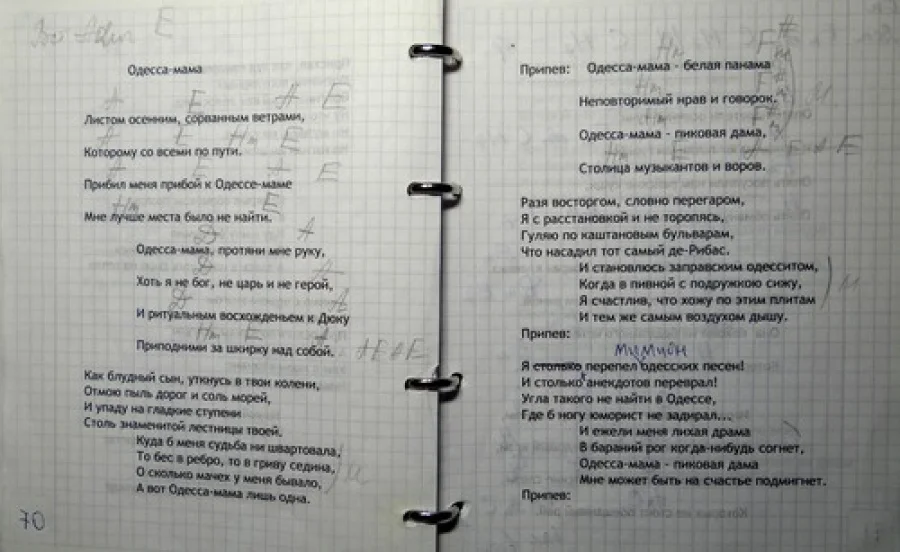 E
Одесса-мама
A E A E
Листом осенним, сорванным ветрами,
A E Hm E
Которому со всеми по пути.
A E A E
Прибил меня прибой к Одессе-маме
Hm E
Мне лучше места было не найти.
D A
Одесса-мама, протяни мне руку,
D A
Хоть я не бог, не царь и не герой,
D A
И ритуальным восхожденьем к Дюку
Hm E A
Приподними за шкирку над собой. A E A E
Как блудный сын, уткнусь в твои колени,
Отмою пыль дорог и соль морей,
И упаду на гладкие ступени
Столь знаменитой лестницы твоей.
Куда б меня судьба ни швартовала,
То бес в ребро, то в гриву седина,
О сколько мачех у меня бывало,
А вот Одесса-мама лишь одна.
70
Hm F#m
Припев: Одесса-мама - белая панама
Hm F#m
Неповторимый нрав и говорок.
Hm F#m
Одесса-мама - пиковая дама,
Hm E A E A E
Столица музыкантов и воров.
Разя восторгом, словно перегаром,
Я с расстановкой и не торопясь,
Гуляю по каштановым бульварам,
Что насадил тот самый де-Рибас.
И становлюсь заправским одесситом,
Когда в пивной с подружкою сижу,
Я счастлив, что хожу по этим плитам
И тем же самым воздухом дышу.
Припев:
Я столько перепел одесских песен!
И столько анекдотов переврал!
Угла такого не найти в Одессе,
Где б ногу юморист не задирал...
И ежели меня лихая драма
В бараний рог когда-нибудь согнет,
Одесса-мама - пиковая дама
Мне может быть на счастье подмигнет.
Припев: